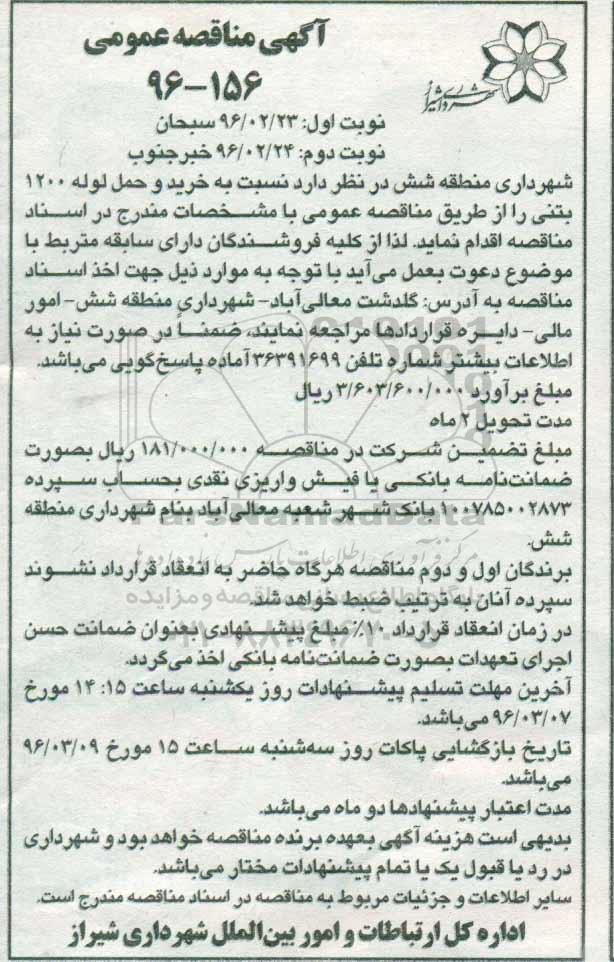 شهرداری شیراز
آگهی مناقصه عمومی
۹۶-۱۵۶
نوبت اول: ۹۶/۰۲/۲۳ سبحان
نوبت دوم: ۹۶/۰۲/۲۴ خبرجنوب
شهرداری منطقه شش در نظر دارد نسبت به خرید و حمل لوله ۱۲۰۰
بتنی را از طریق مناقصه عمومی با مشخصات مندرج در اسناد
مناقصه اقدام نماید. لذا از کلیه فروشندگان دارای سابقه متربط با
موضوع دعوت بعمل می‌آید با توجه به موارد ذیل جهت اخذ اسناد
مناقصه به آدرس: گلدشت معالی‌آباد- شهرداری منطقه شش- امور
مالی- دایره قراردادها مراجعه نمایند، ضمناً در صورت نیاز به
اطلاعات بیشتر شماره تلفن ۳۶۳۹۱۶۹۹ آماده پاسخ‌گویی می‌باشد.
مبلغ برآورد ۳/۶۰۳/۶۰۰/۰۰۰ ریال
مدت تحویل ۲ ماه
مبلغ تضمین شرکت در مناقصه ۱۸۱/۰۰۰/۰۰۰ ریال بصورت
ضمانت‌نامه بانکی یا فیش واریزی نقدی بحساب سپرده
۱۰۰۷۸۵۰۰۲۸۷۳ بانک شهر شعبه معالی‌آباد بنام شهرداری منطقه
شش.
برندگان اول و دوم مناقصه هرگاه حاضر به انعقاد قرارداد نشوند
سپرده آنان به ترتیب ضبط خواهد شد.
در زمان انعقاد قرارداد ۱۰٪ مبلغ پیشنهادی بعنوان ضمانت حسن
اجرای تعهدات بصورت ضمانت‌نامه بانکی اخذ می‌گردد.
آخرین مهلت تسلیم پیشنهادات روز یکشنبه ساعت ۱۴:۱۵ مورخ
۹۶/۰۳/۰۷ می‌باشد.
تاریخ بازگشایی پاکات روز سه‌شنبه ساعت ۱۵ مورخ ۹۶/۰۳/۰۹
می‌باشد.
مدت اعتبار پیشنهادها دو ماه می‌باشد.
بدیهی است هزینه آگهی بعهده برنده مناقصه خواهد بود و شهرداری
در رد یا قبول یک یا تمام پیشنهادات مختار می‌باشد.
سایر اطلاعات و جزئیات مربوط به مناقصه در اسناد مناقصه مندرج است.
اداره کل ارتباطات و امور بین‌الملل شهرداری شیراز